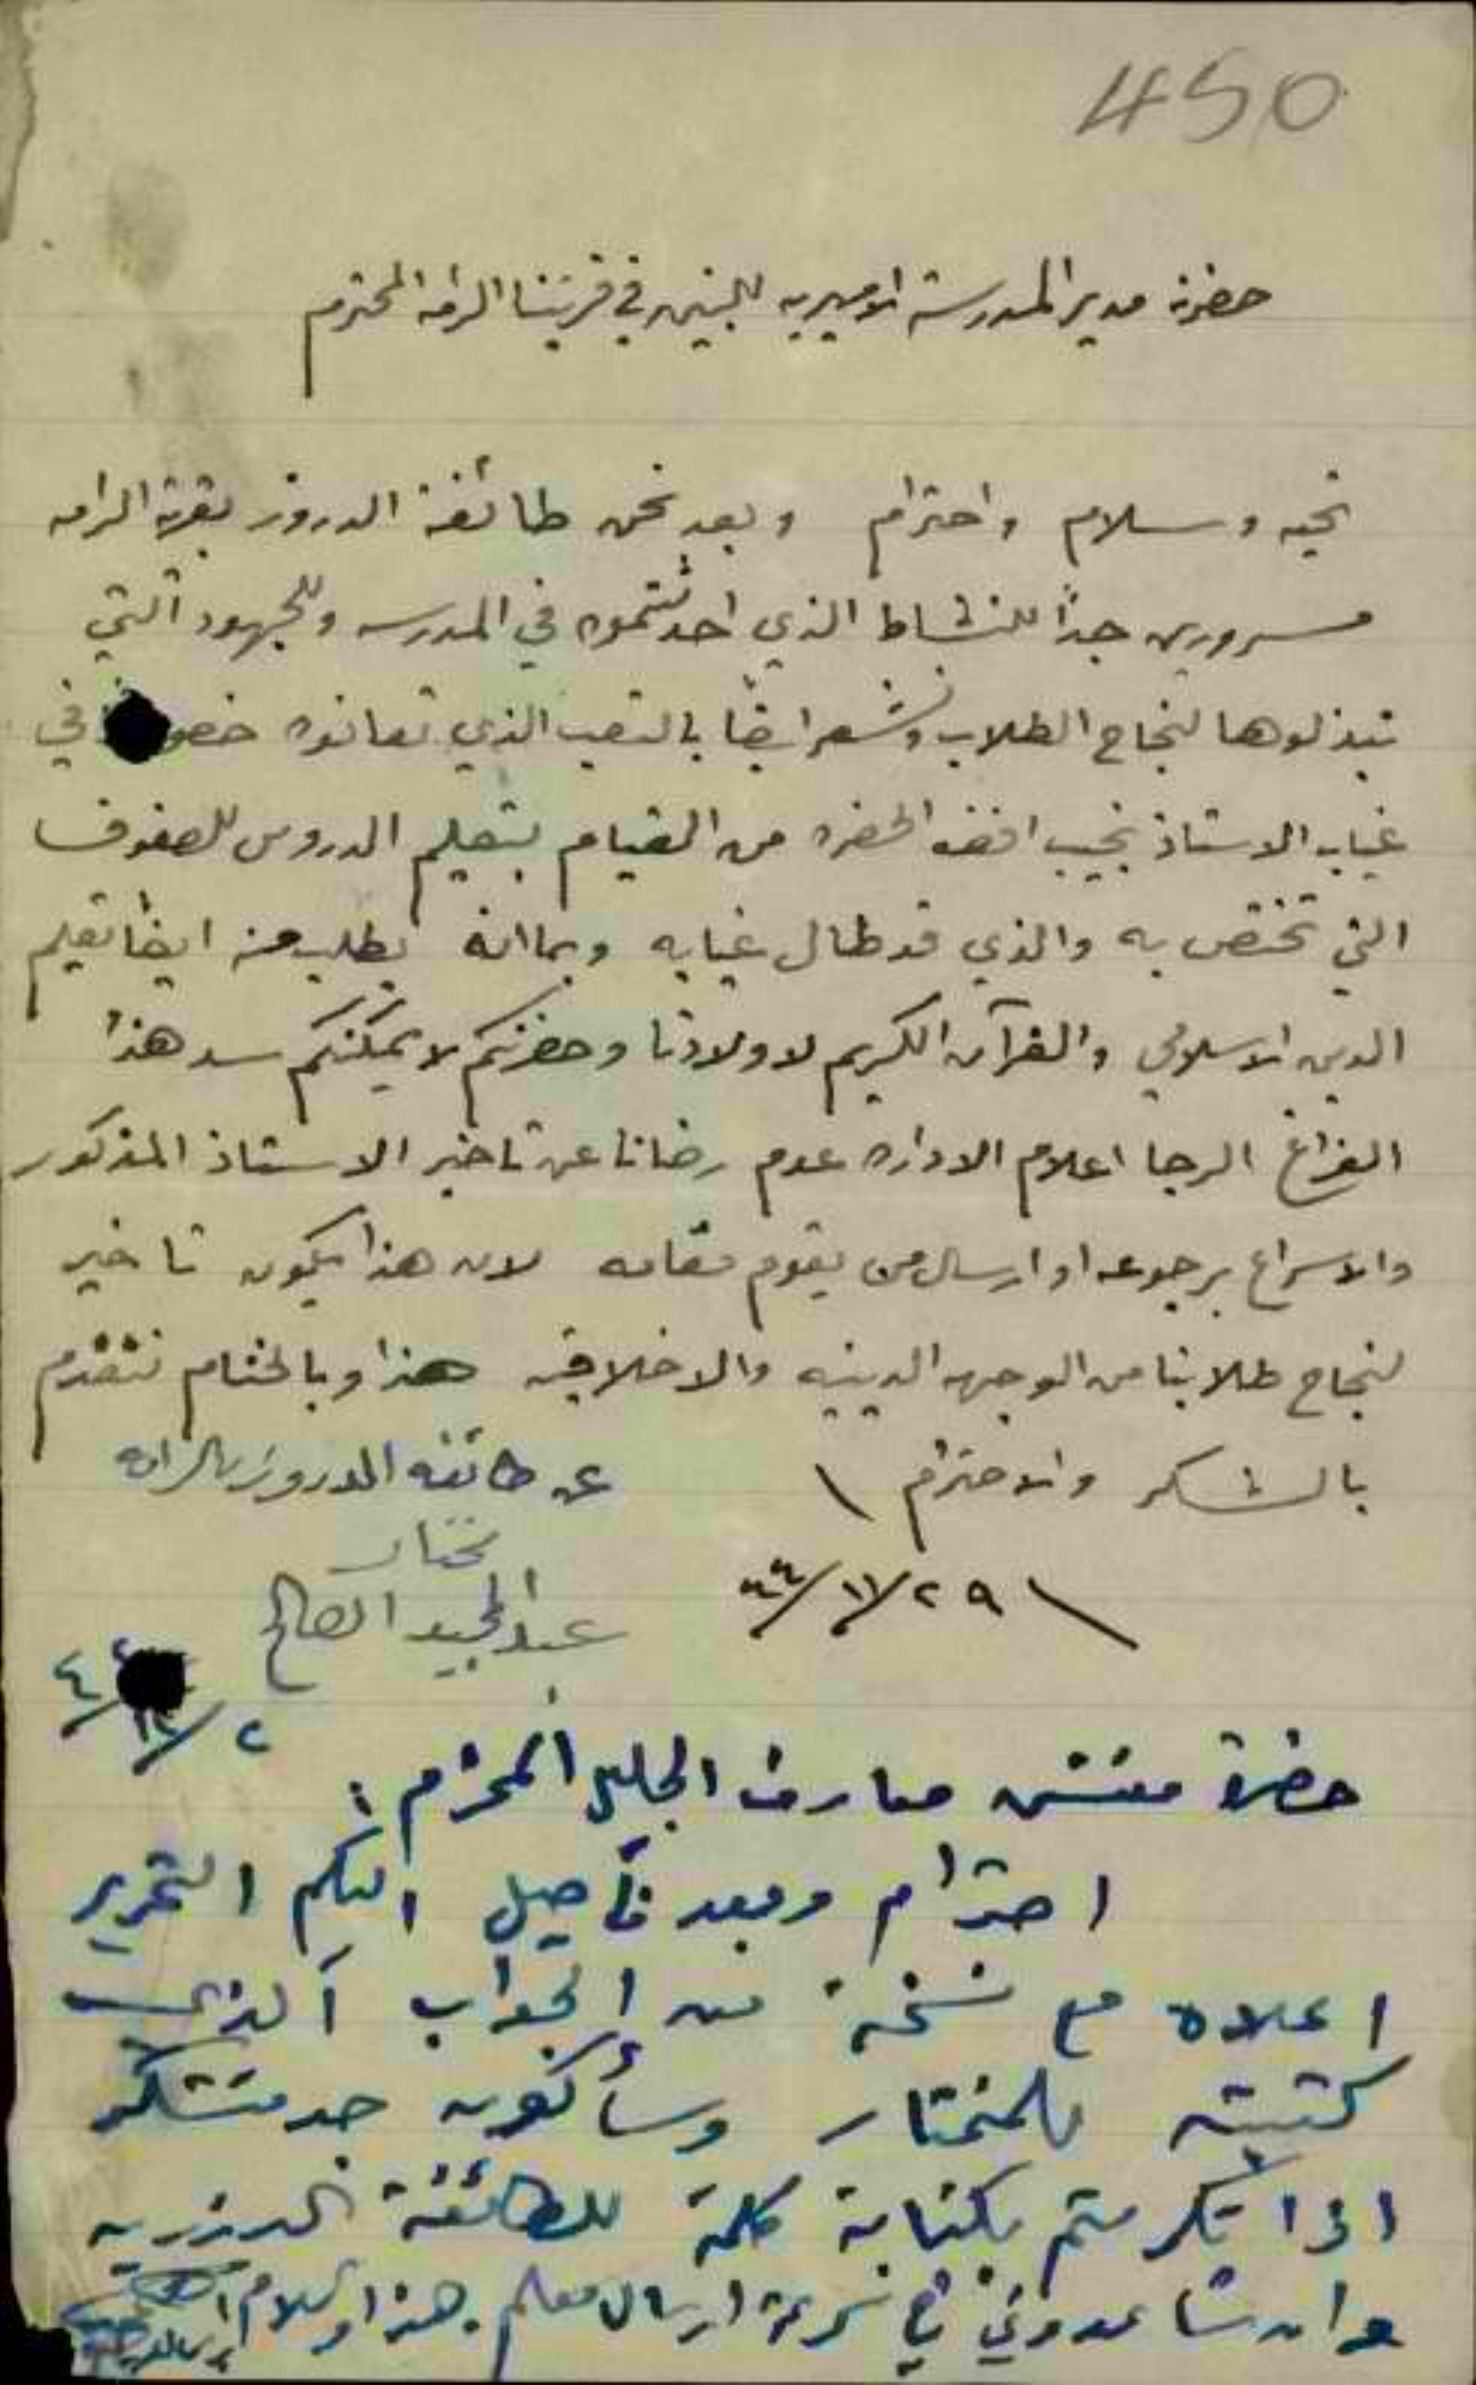 450
حضرة مدير المدرسة الاميريه للبنين في قريتنا الرامه المحترم
تحيه وسلام واحترام وبعد نحن طائفة الدروز بقرية الرامه
مسرورين جداً للنشاط الذي احدثتموه في المدرسه وللجهود التي
تبذلوها لنجاح الطلاب ونشعر ايضاً بالتعب الذي تعانوه في
غياب الاستاذ نجيب الخضره من القيام بتعليم الدروس للصفوف
التي تختص به والذي قد طال غيابه وبما انه يطلب منه ايضا تعليم
الدين الاسلامي والقرآن الكريم لاولادنا وحضرتكم لا يمكنكم سد هذا
الفراغ الرجا اعلام الاداره عدم رضانا عن تاخير الاستاذ المذكور
والاسراع برجوعه او ارسال من يقوم مقامه لان هذا يكون تاخير
لنجاح طلابنا من الوجهه الدينيه والاخلاقيه هذا وبالختام نتقدم
بالشكر والاحترام \
عن طائفة الدروز بالرامه
مختار
عبدالمجيد الصالح
٢٩/١١/٤٤
٢/١٢/
حضرة مفتش معارف الجليل المحترم :
احترام وبعد تأصيل اليكم التحرير
اعلاه مع نسخة من الجواب الذي
كتبته للمختار وسأكون جد متشكر
اذا تكرمتم بكتابة كلمة للطائفة الدرزيه
وان تساعدوني في سرعة ارسال معلم . هذا والسلام